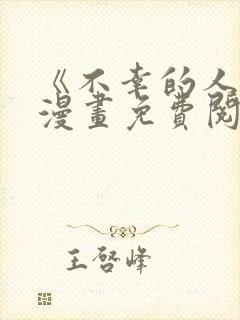 《不幸的人
漫畫免費閱
王啓峰